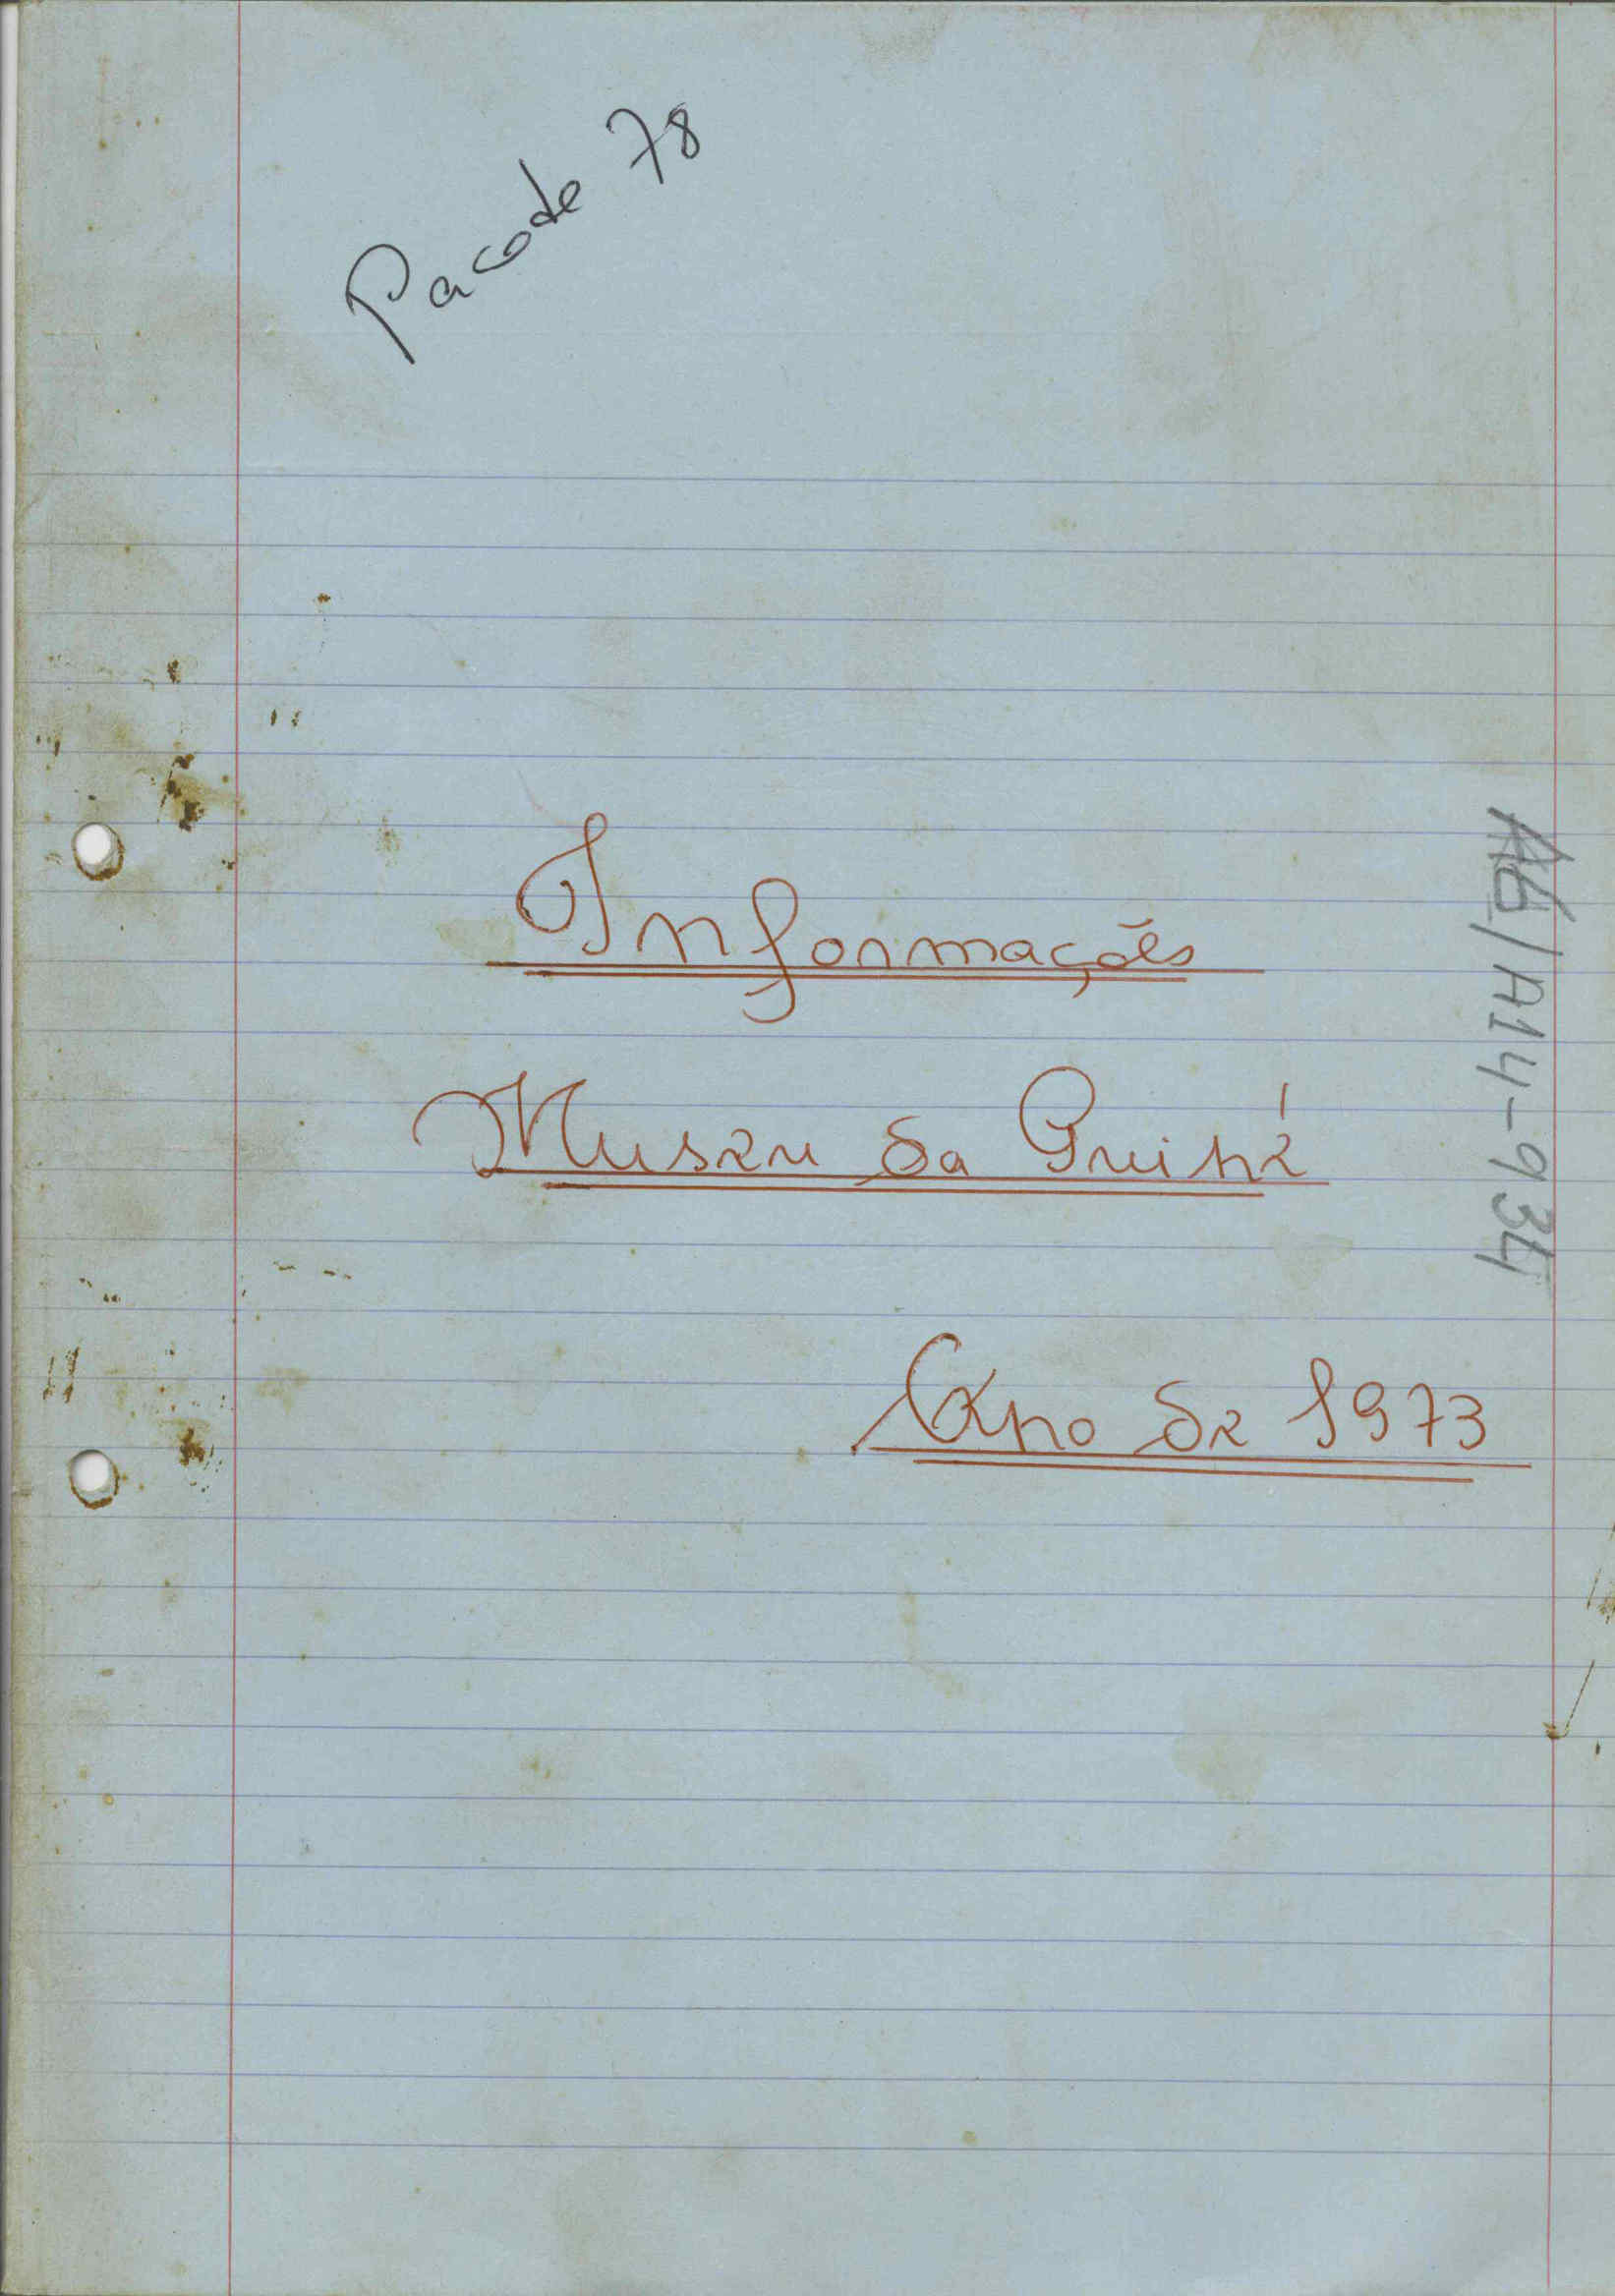 Pacote 78
Informações
Museu da Guiné
Ano de 1973
A6/A14-934